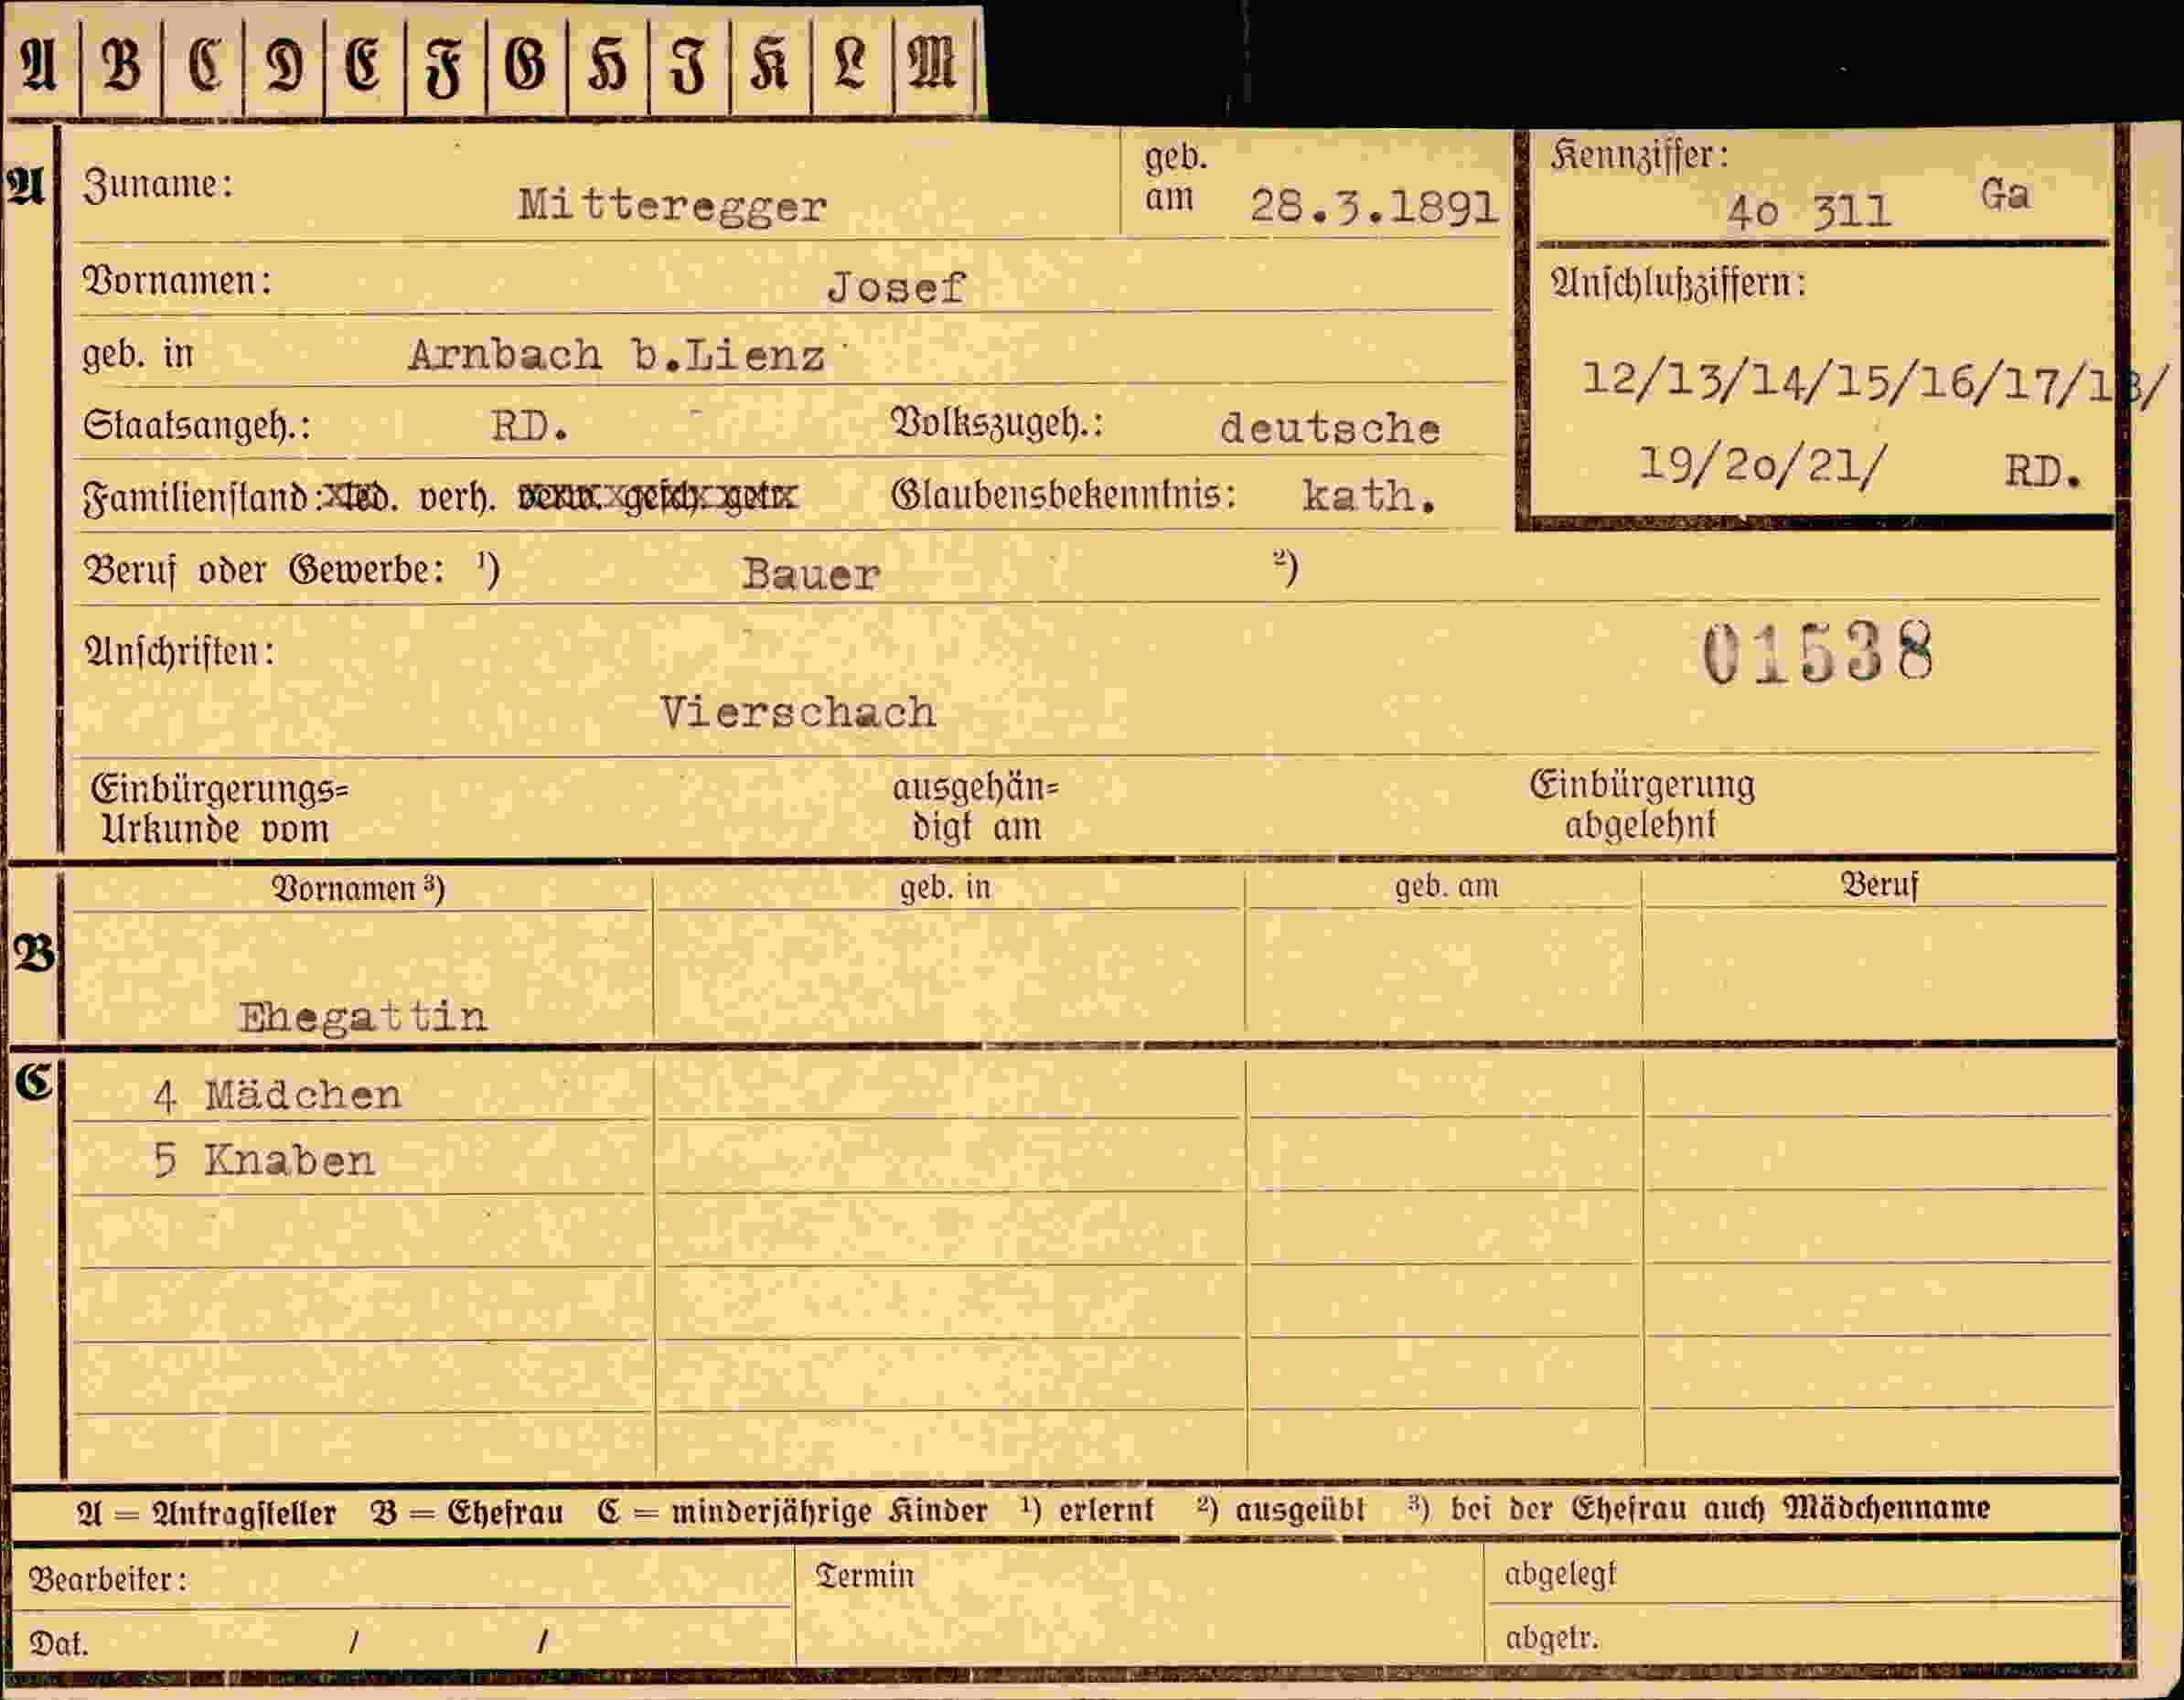 A B C D E F G H I K L M
A Zuname: Mitteregger geb. am 28.3.1891 Kennziffer: 4o 311 Ga
Vornamen: Josef Anschlußziffern:
geb. in Arnbach b.Lienz 12/13/14/15/16/17/18/
Staatsangeh.: RD. Volkszugeh.: deutsche 19/2o/21/ RD.
Familienstand: led. verh. verw. gesch. getr. Glaubensbekenntnis: kath.
Beruf oder Gewerbe: ¹) Bauer ²)
Anschriften: 01538
Vierschach
Einbürgerungs= ausgehän= Einbürgerung
Urkunde vom digt am abgelehnt
B Vornamen ³) geb. in geb. am Beruf
Ehegattin
C 4 Mädchen
5 Knaben
A = Antragsteller B = Ehefrau C = minderjährige Kinder ¹) erlernt ²) ausgeübt ³) bei der Ehefrau auch Mädchenname
Bearbeiter: Termin abgelegt
Dat. / / abgetr.